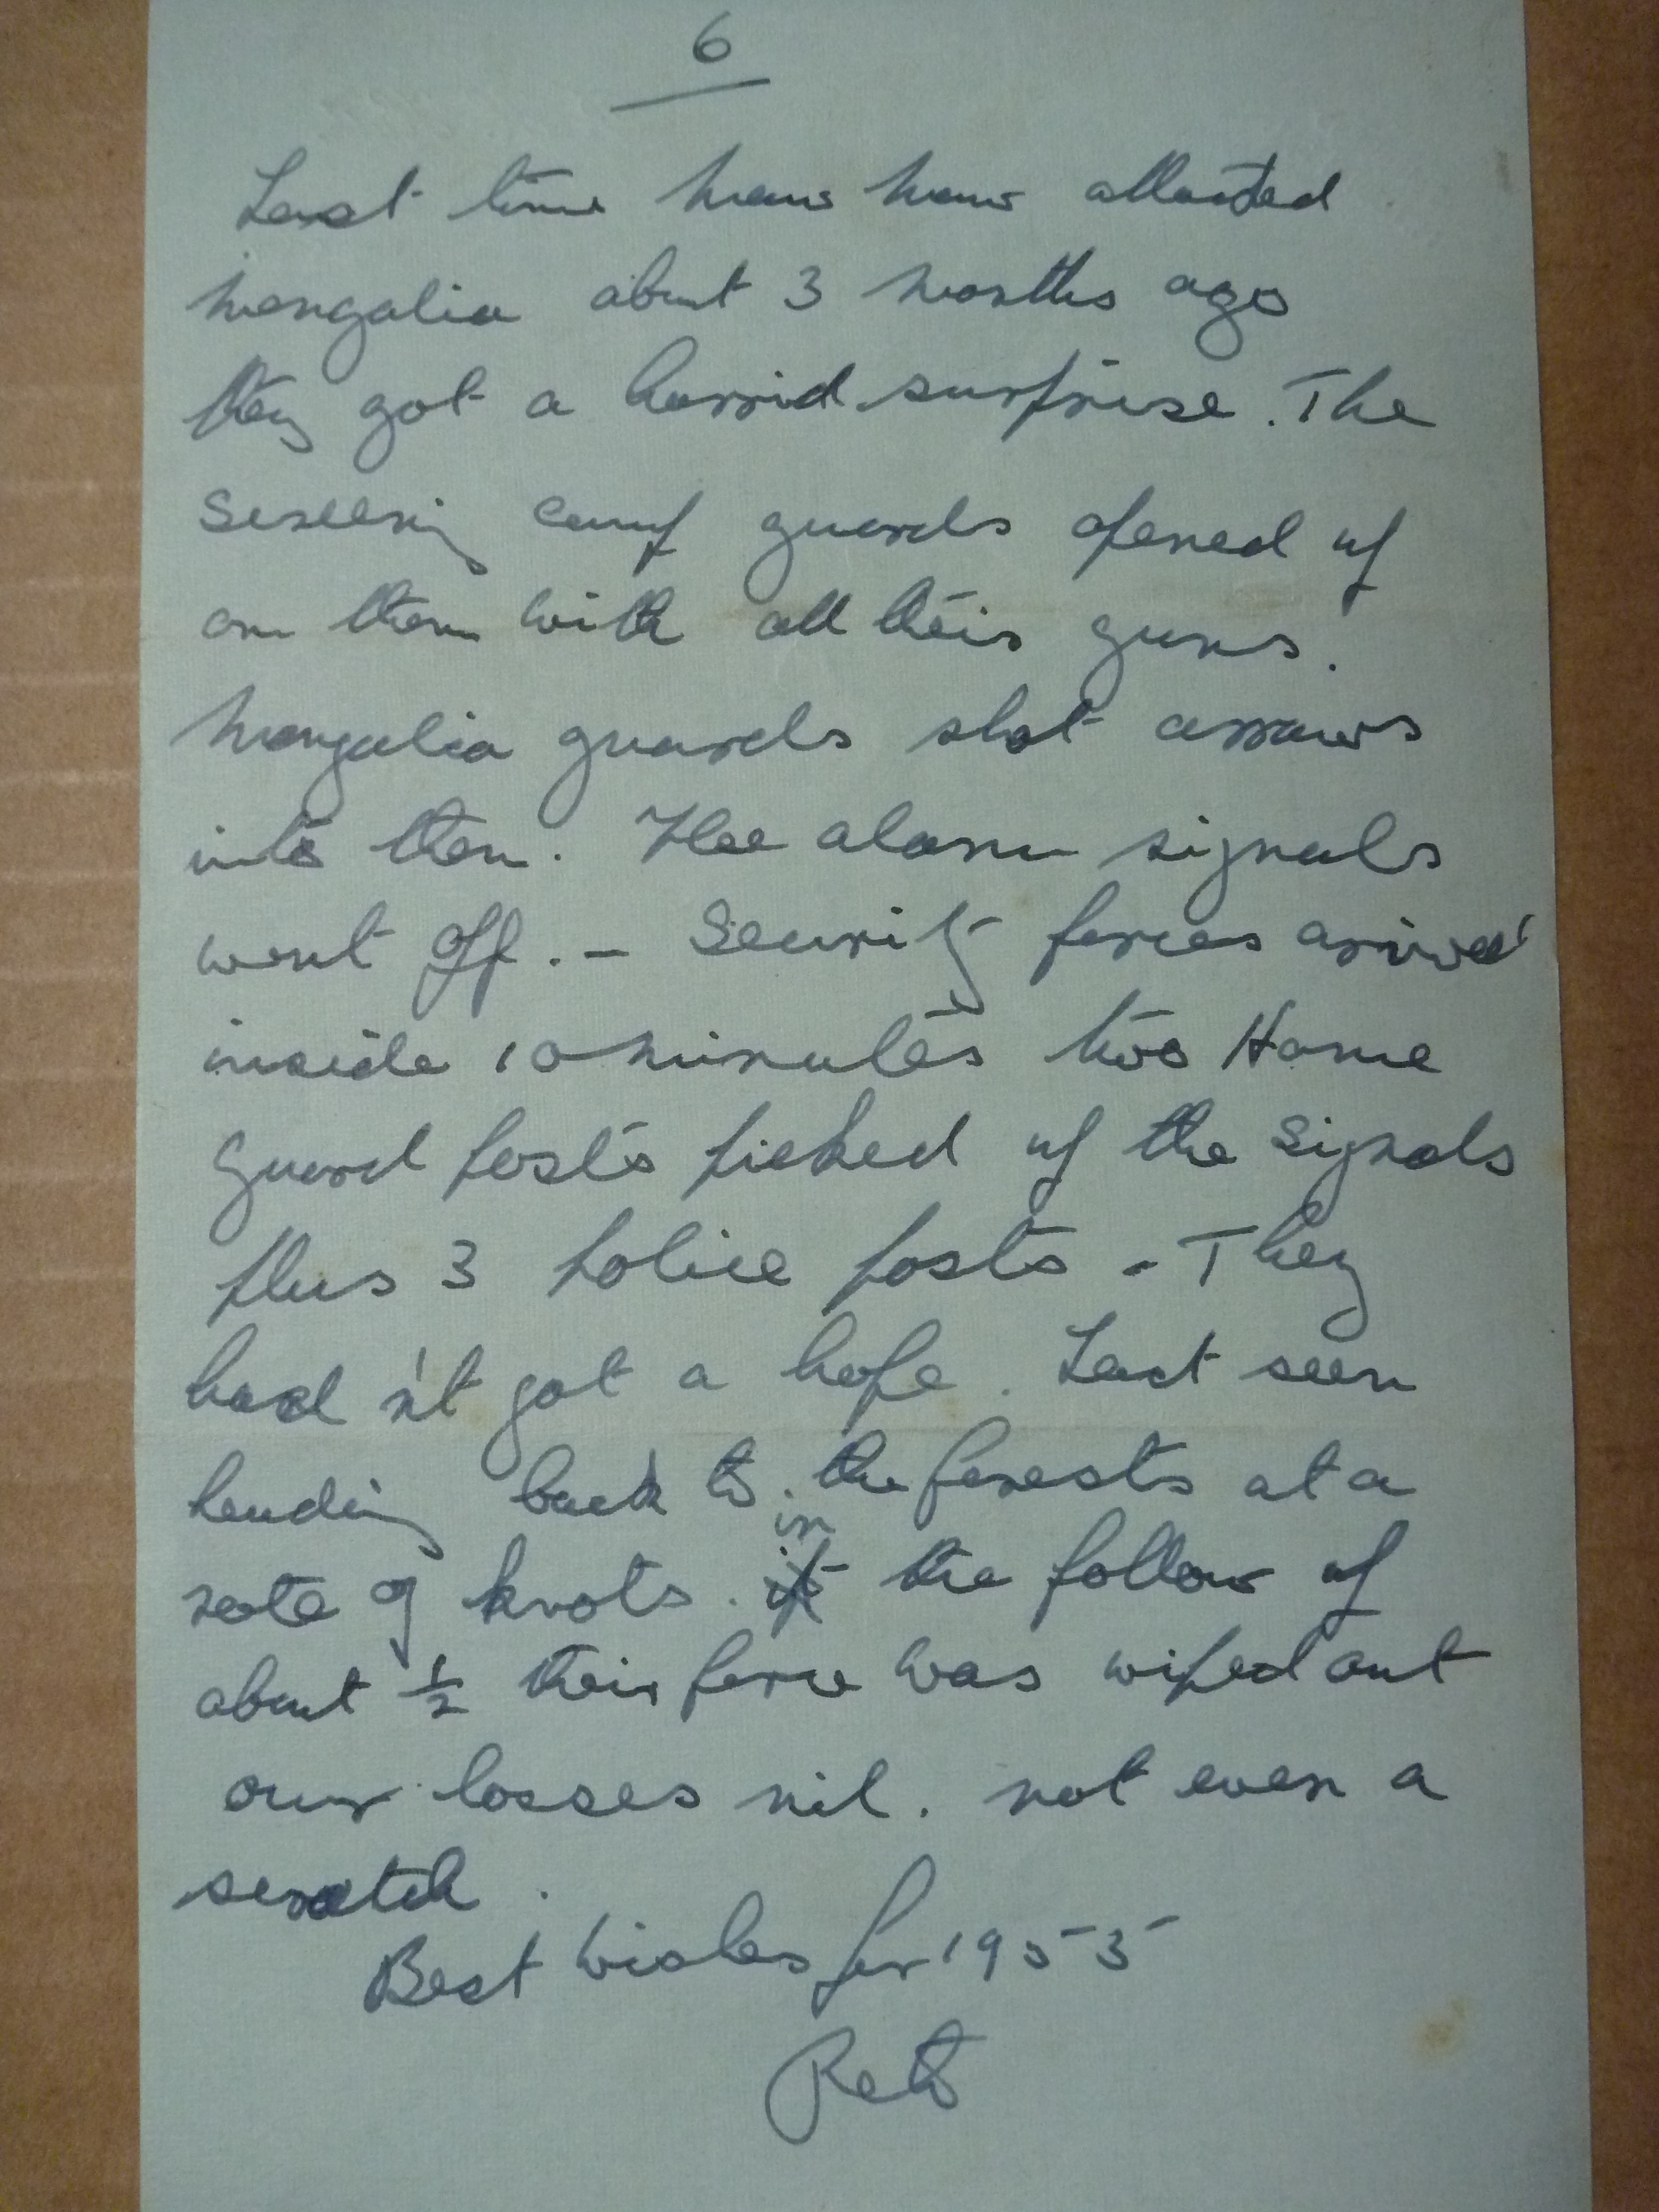 6
Last time mau mau attacked
mengalia about 3 months ago
they got a horrid surprise. The
Screening camp guards opened up
on them with all their guns.
mengalia guards shot arrows
into them. The alarm signals
went off. - Security forces arrived
inside 10 minutes two Home
guard posts picked up the signals
plus 3 police posts - They
had n't got a hope. Last seen
heading back to the forests at a
rate of knots. in the follow up
about ½ their force was wiped out
our losses nil. not even a
scratch.
Best wishes for 1955